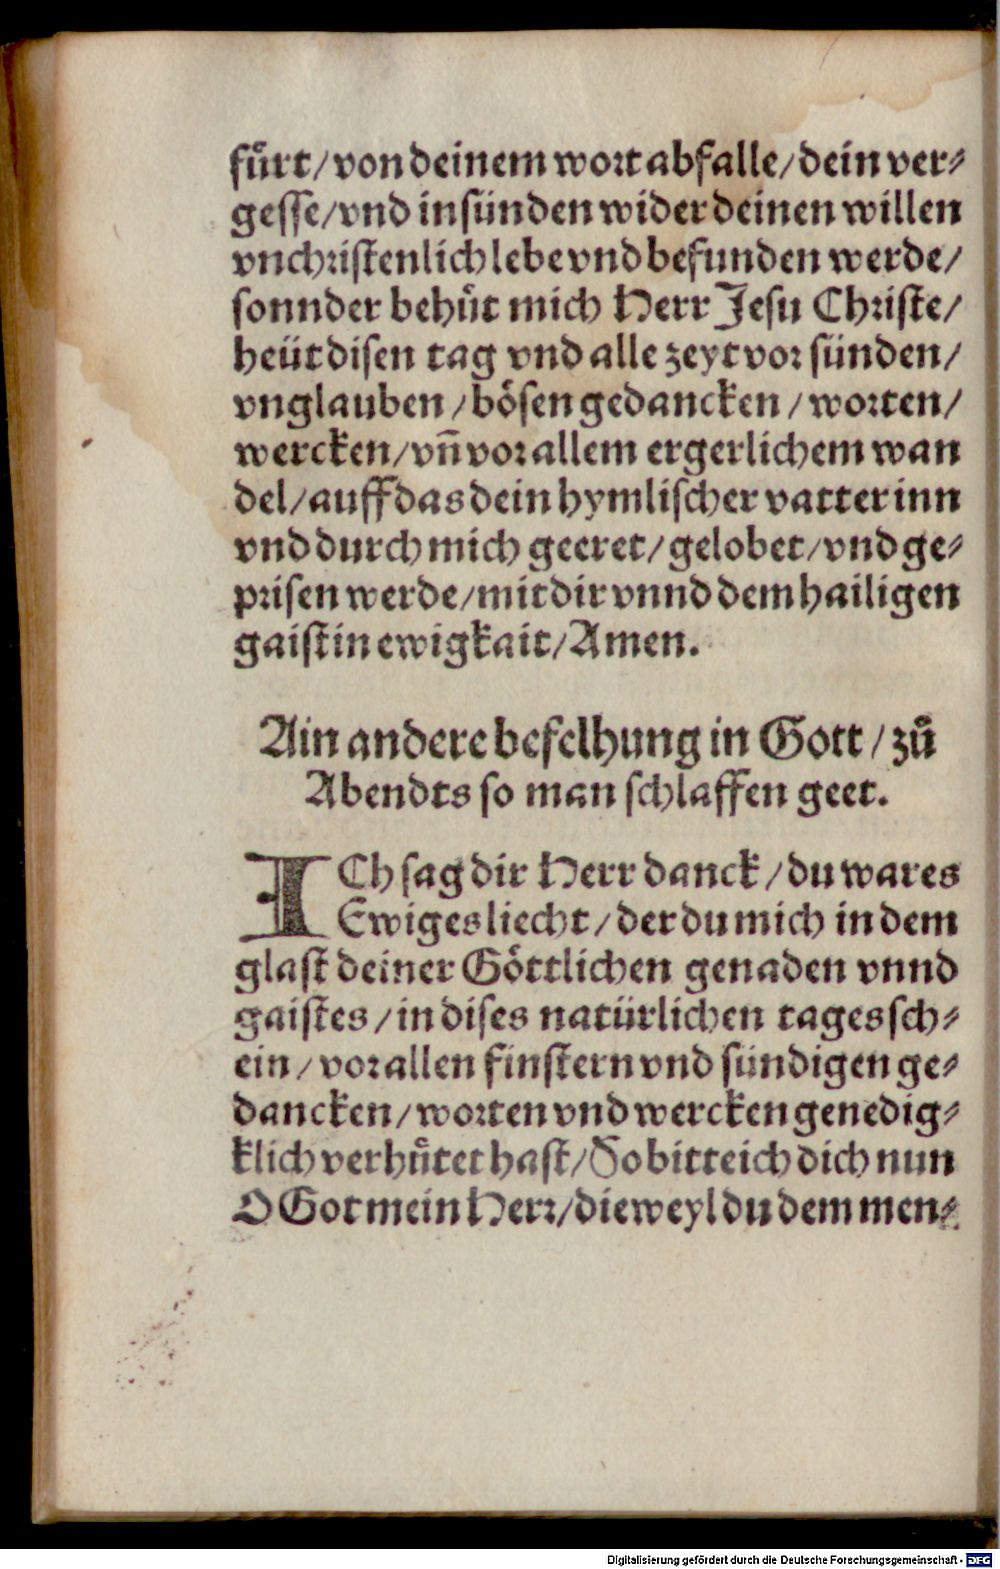 fuͤrt/von deinem wort abfalle/dein ver⸗
gesse/vnd in sünden wider deinen willen
vnchristenlich lebe vnd befunden werde/
sonnder behuͤt mich Herr Jesu Christe/
heüt disen tag vnd alle zeyt vor sünden/
vnglauben/boͤsen gedancken/worten/
wercken/vñ vor allem ergerlichem wan
del/auff das dein hymlischer vatter inn
vnd durch mich geeret/gelobet/vnd ge⸗
prisen werde/mit dir vnnd dem hailigen
gaist in ewigkait/Amen.
Ain andere befelhung in Gott/zuͦ
Abendts so man schlaffen geet.
ICh sag dir Herr danck/du wares
Ewiges liecht/der du mich in dem
glast deiner Goͤttlichen genaden vnnd
gaistes/in dises natürlichen tages sch⸗
ein/vor allen finstern vnd sündigen ge⸗
dancken/worten vnd wercken genedig⸗
klich verhuͤtet hast/So bitte ich dich nun
O Got mein Herr/dieweyl du dem men⸗
Digitalisierung gefördert durch die Deutsche Forschungsgemeinschaft - DFG